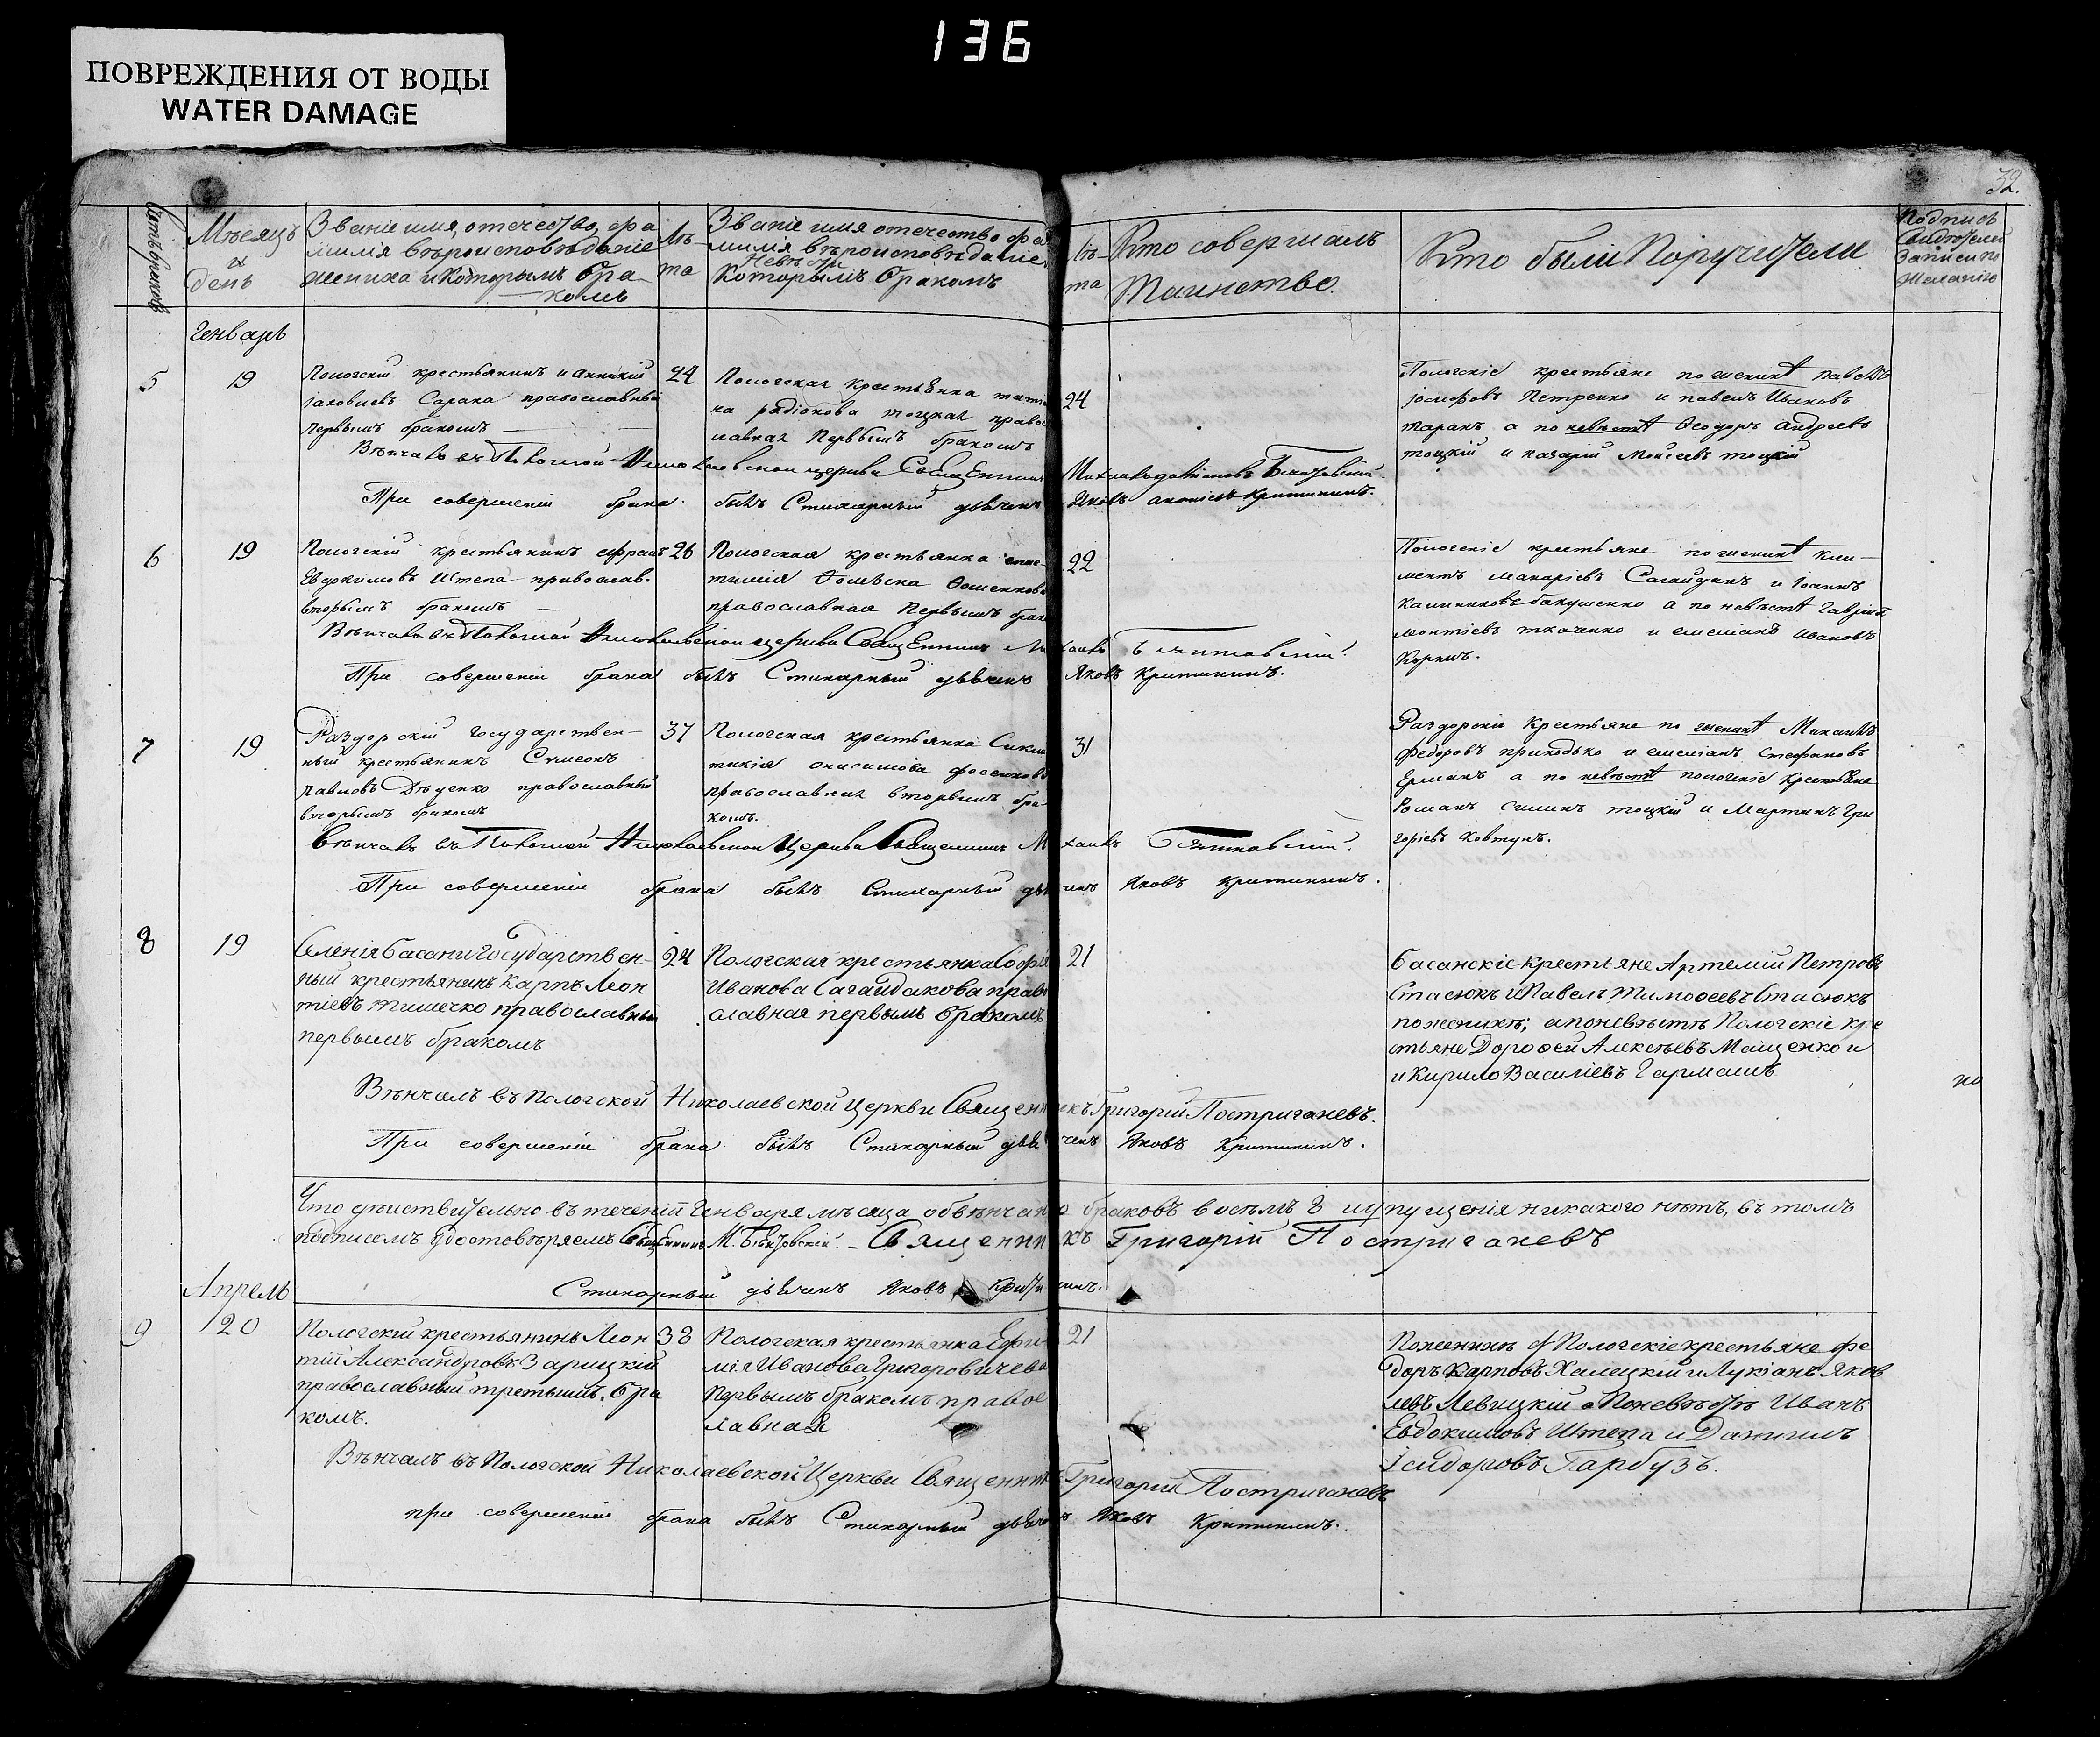 136
ПОВРЕЖДЕНИЯ ОТ ВОДЫ
WATER DAMAGE
32.
Мѣсяцъ
и
день
Званіе имя, отечество, фа
милія вѣроисповѣданіе
жениха и Которымъ бра-
комъ
Лѣ-
та
Званіе имя отечество фа
милія вѣроисповѣданіе
невѣсты
Которымъ бракомъ
Лѣ-
та
Кто совершалъ
Таинство.
Кто были Поручители
Подпись
Свидѣтелей
Записи по
Желанію
Генварь
5
19
Пологскій крестьянинъ
Іаковлевъ Сарана православный
первымъ бракомъ
24
Пологская крестьянка
на родіонова тоцкая право
славная Первымъ бракомъ
24
Пологскіе крестьяне по женихѣ Павелъ
Іосифовъ Петренко и павелъ Ивановъ
таранъ а по невѣстѣ Ѳеодоръ Андреевъ
тоцкій и назарій Моисеевъ тоцкій
Вѣнчалъ въ Пологской Николаевской церкви Священникъ
При совершеніи брака былъ Стихарный дьячекъ Яковъ Критининъ.
6
19
Пологскій крестьянинъ
Евдокимовъ Штепа православ.
вторымъ бракомъ
26
Пологская крестьянка
православная Первымъ брак
22
Пологскіе крестьяне по женихѣ Кли-
ментъ макаріевъ Сагайдакъ и Іоаннъ
а по невѣстѣ Гавріилъ
леонтіевъ ткаченко и емеліанъ Ивановъ
Вѣнчалъ въ Пологской Николаевской церкви Священникъ
При совершеніи брака былъ Стихарный дьячекъ Яковъ Критининъ.
7
19
Раздорскій Государствен-
ный крестьянинъ Сумеонъ
павловъ Дѣденко православный
вторымъ бракомъ
37
Пологская крестьянка
тикія онисимова фесенкова
православная вторымъ бра-
комъ.
31
Раздорскіе Крестьяне по женихѣ Михаилъ
Федоровъ приходько и емеліанъ Стефановъ
Ерманъ а по невѣстѣ пологскіе Крестьяне
Романъ Силинъ тоцкій и Мартинъ Гри
горіевъ Ковтунъ.
Вѣнчалъ въ Пологской Николаевской Церкви Священникъ Михаилъ
При совершеніи брака былъ Стихарный дьячекъ Яковъ Критининъ.
8
19
Селенія Басани Государствен-
ный крестьянинъ Карпъ Леон
тіевъ Тишечко православный
первымъ бракомъ
24
Пологская крестьянка Софія
Иванова Сагайдакова право
славная первымъ бракомъ
21
Басанскіе крестьяне Артемій Петровъ
Стасюкъ и Павелъ Тимофеевъ Стасюкъ
по женихѣ; а по невѣстѣ Пологскіе кре
стьяне Дорофей Алексѣевъ Мащенко и
и Кирило Василіевъ Гармашъ
Вѣнчалъ въ Пологской Николаевской Церкви Священникъ Григорій Постригачевъ.
При совершеніи брака былъ Стихарный дьячекъ Яковъ Критининъ.
Что дѣиствительно въ теченіи Генваря мѣсяца обвѣнчано браковъ восѣмъ 8 и упущенія никакого нѣтъ, въ томъ
подписомъ удостовѣряемъ Священникъ М. — Священникъ Григорій Постригачевъ
Стихарный дьячекъ Яковъ Критининъ.
Апрель
9
20
Пологскій крестьянинъ Леон
тій Александровъ Зарицкій
православный третьимъ бра
комъ.
38
Пологская крестьянка Ефи
мія Иванова Григоровичева
Первымъ бракомъ правос
лавная
21
По женихѣ Пологскіе крестьяне Фе
доръ Карповъ Халецкій и Лукіанъ Яков
левъ Левицкій а По невѣстѣ Иванъ
Евдокимовъ Штепа и Даніилъ
Ісидоровъ Гарбузъ.
Вѣнчалъ въ Пологской Николаевской Церкви Священникъ Григорій Постригачевъ
при совершеніи брака былъ Стихарный дьячекъ Яковъ Критининъ.